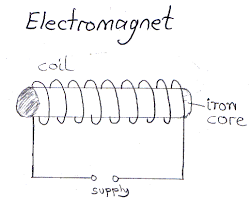 Electromagnet
coil
iron
core
supply